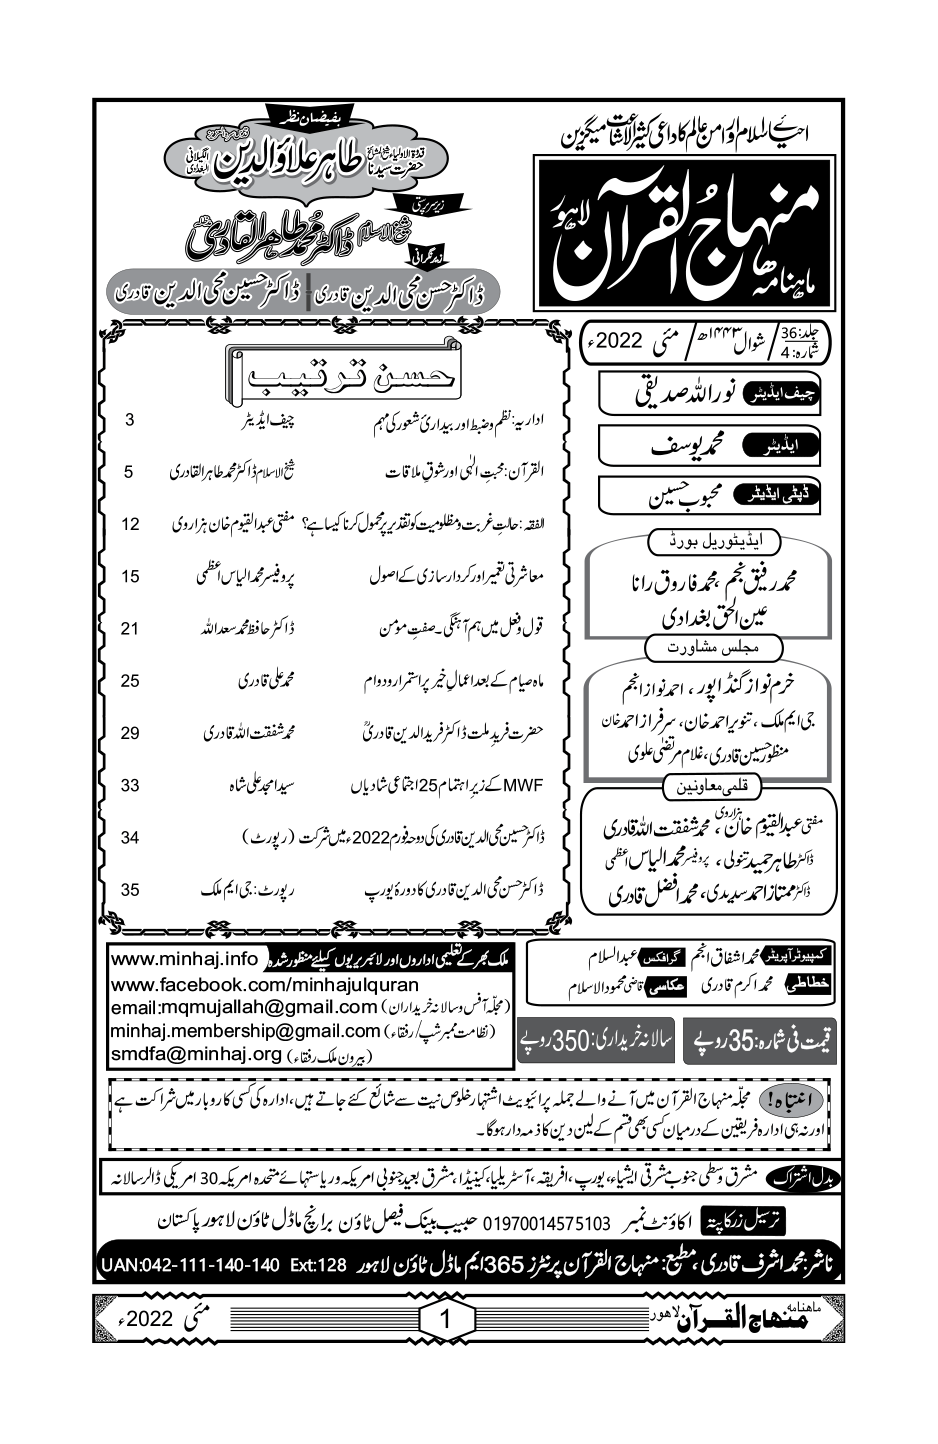 احیائے اسلام اور امن عالم کا داعی کثیر الاشاعت میگزین
ماہنامہ منہاج القرآن لاہور
بفیضانِ نظر
قدوۃ الاولیاء شیخ المشائخ حضرت سیدنا طاہر علاؤالدین الگیلانی البغدادی
زیر سرپرستی
شیخ الاسلام ڈاکٹر محمد طاہر القادری
زیر نگرانی
ڈاکٹر حسن محی الدین قادری | ڈاکٹر حسین محی الدین قادری
جلد: 36 شمارہ: 4 / شوال ۱۴۴۳ھ / مئی 2022ء
چیف ایڈیٹر نور اللہ صدیقی
ایڈیٹر محمد یوسف
ڈپٹی ایڈیٹر محبوب حسین
ایڈیٹوریل بورڈ
محمد رفیق نجم، محمد فاروق رانا
عین الحق بغدادی
مجلس مشاورت
خرم نواز گنڈاپور، احمد نواز انجم
جی ایم ملک، تنویر احمد خان، سرفراز احمد خان
منظور حسین قادری، غلام مرتضیٰ علوی
قلمی معاونین
مفتی عبدالقیوم خان ہزاروی، محمد شفقت اللہ قادری
ڈاکٹر طاہر حمید تنولی، پروفیسر محمد الیاس اعظمی
ڈاکٹر ممتاز احمد سدیدی، محمد افضل قادری
حسن ترتیب
اداریہ: نظم و ضبط اور بیداریٔ شعور کی مہم چیف ایڈیٹر 3
القرآن: محبتِ الٰہی اور شوقِ ملاقات شیخ الاسلام ڈاکٹر محمد طاہر القادری 5
الفقہ: حالتِ غربت و مظلومیت کو تقدیر پر محمول کرنا کیسا ہے؟ مفتی عبدالقیوم خان ہزاروی 12
معاشرتی تعمیر اور کردار سازی کے اصول پروفیسر محمد الیاس اعظمی 15
قول و فعل میں ہم آہنگی۔ صفتِ مومن ڈاکٹر حافظ محمد سعد اللہ 21
ماہ صیام کے بعد اعمالِ خیر پر استمرار و دوام محمد علی قادری 25
حضرت فریدِ ملت ڈاکٹر فرید الدین قادریؒ محمد شفقت اللہ قادری 29
MWF کے زیرِ اہتمام 25 اجتماعی شادیاں سید امجد علی شاہ 33
ڈاکٹر حسین محی الدین قادری کی دوحہ فورم 2022ء میں شرکت (رپورٹ) 34
ڈاکٹر حسن محی الدین قادری کا دورۂ یورپ رپورٹ: جی ایم ملک 35
کمپیوٹر آپریٹر محمد اشفاق انجم گرافکس عبدالسلام
خطاطی محمد اکرم قادری عکاسی قاضی محمود الاسلام
قیمت فی شمارہ: 35 روپے
سالانہ خریداری: 350 روپے
ملک بھر کے تعلیمی اداروں اور لائبریریوں کیلئے منظور شدہ www.minhaj.info
www.facebook.com/minhajulquran
email:mqmujallah@gmail.com (مجلّہ آفس و سالانہ خریداران)
minhaj.membership@gmail.com (نظامت ممبر شپ/رفقاء)
smdfa@minhaj.org (بیرون ملک رفقاء)
انتباہ! مجلّہ منہاج القرآن میں آنے والے جملہ پرائیویٹ اشتہار خلوص نیت سے شائع کئے جاتے ہیں، ادارہ کی کسی کاروبار میں شراکت ہے
اور نہ ہی ادارہ فریقین کے درمیان کسی بھی قسم کے لین دین کا ذمہ دار ہوگا۔
بدل اشتراک مشرق وسطیٰ جنوب مشرقی ایشیاء، یورپ، افریقہ، آسٹریلیا، کینیڈا، مشرق بعید جنوبی امریکہ و ریاستہائے متحدہ امریکہ 30 امریکی ڈالر سالانہ
ترسیل زر کا پتہ اکاؤنٹ نمبر 01970014575103 حبیب بینک فیصل ٹاؤن برانچ ماڈل ٹاؤن لاہور پاکستان
ناشر: محمد اشرف قادری، مطبع: منہاج القرآن پرنٹرز 365 ایم ماڈل ٹاؤن لاہور UAN:042-111-140-140 Ext:128
ماہنامہ منہاج القرآن لاہور 1 مئی 2022ء